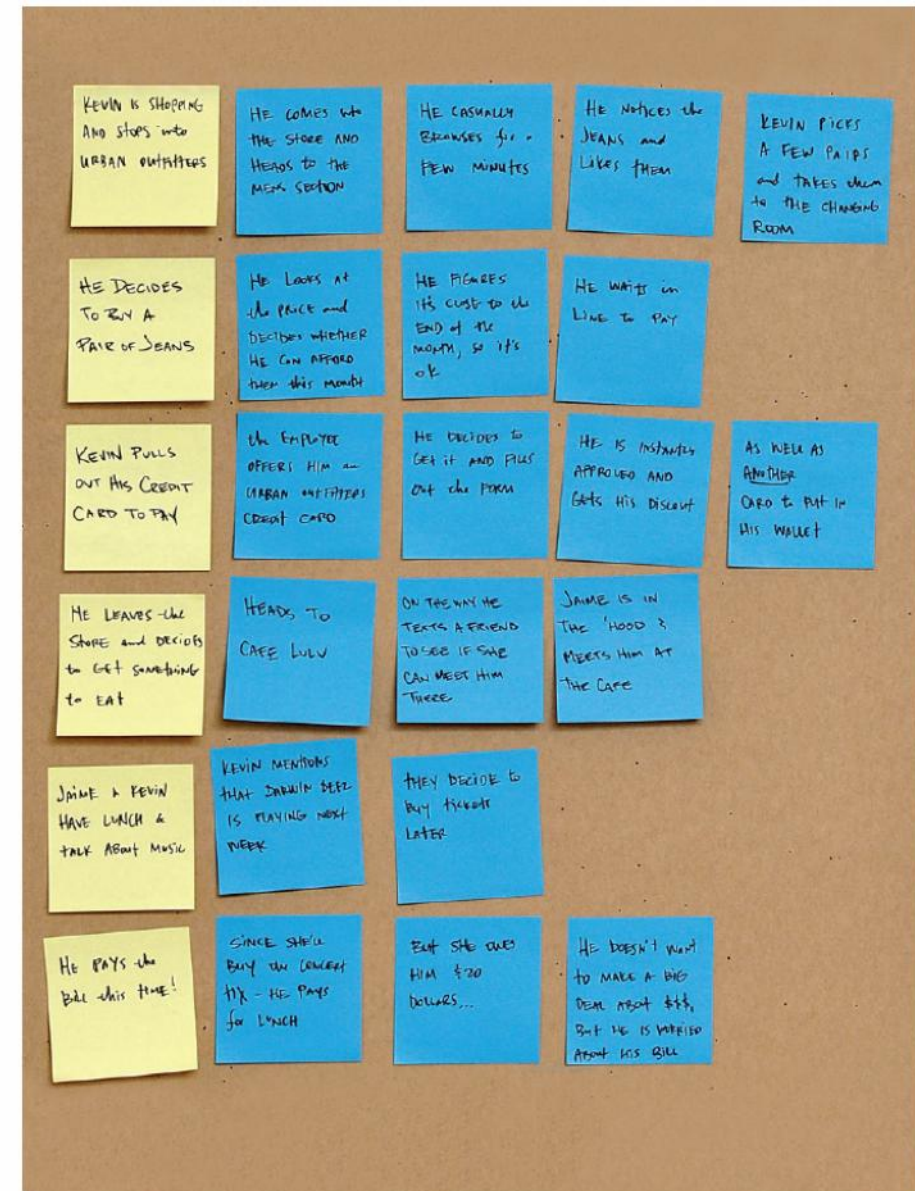 KEVIN IS SHOPPING
AND STOPS into
URBAN OUTFITTERS
HE COMES into
THE STORE AND
HEADS TO THE
MENS SECTION
HE CASUALLY
BROWSES for a
FEW MINUTES
HE NOTICES the
JEANS and
LIKES THEM
KEVIN PICKS
A FEW PAIRS
and TAKES them
to THE CHANGING
ROOM
HE DECIDES
TO BUY A
PAIR OF JEANS
HE LOOKS AT
the PRICE and
DECIDES WHETHER
HE CAN AFFORD
them this month
HE FIGURES
IT'S CLOSE to the
END of the
MONTH, so it's
ok
HE WAITS in
LINE to PAY
KEVIN PULLS
OUT HIS CREDIT
CARD TO PAY
the EMPLOYEE
OFFERS HIM an
URBAN OUTFITTERS
CREDIT CARD
HE DECIDES to
GET it AND FILLS
out the FORM
HE IS instantly
APPROVED AND
GETS HIS DISCOUT
AS WELL AS
ANOTHER
CARD to PUT IN
HIS WALLET
HE LEAVES the
STORE and DECIDES
to GET SOMETHING
to EAT
HEADS TO
CAFE LULU
ON THE WAY HE
TEXTS A FRIEND
TO SEE IF SHE
CAN MEET HIM
THERE
JAIME IS IN
THE 'HOOD &
MEETS HIM AT
THE CAFE
JAIME & KEVIN
HAVE LUNCH &
TALK ABOUT MUSIC
KEVIN MENTIONS
THAT DARWIN DEEZ
IS PLAYING NEXT
WEEK
THEY DECIDE to
BUY tickets
LATER
HE PAYS the
BILL this time!
SINCE SHE'LL
BUY the CONCERT
TIX - HE PAYS
for LUNCH
BUT SHE OWES
HIM $20
DOLLARS...
HE DOESN'T WANT
TO MAKE A BIG
DEAL ABOUT $$$,
BUT HE IS WORRIED
ABOUT HIS BILL